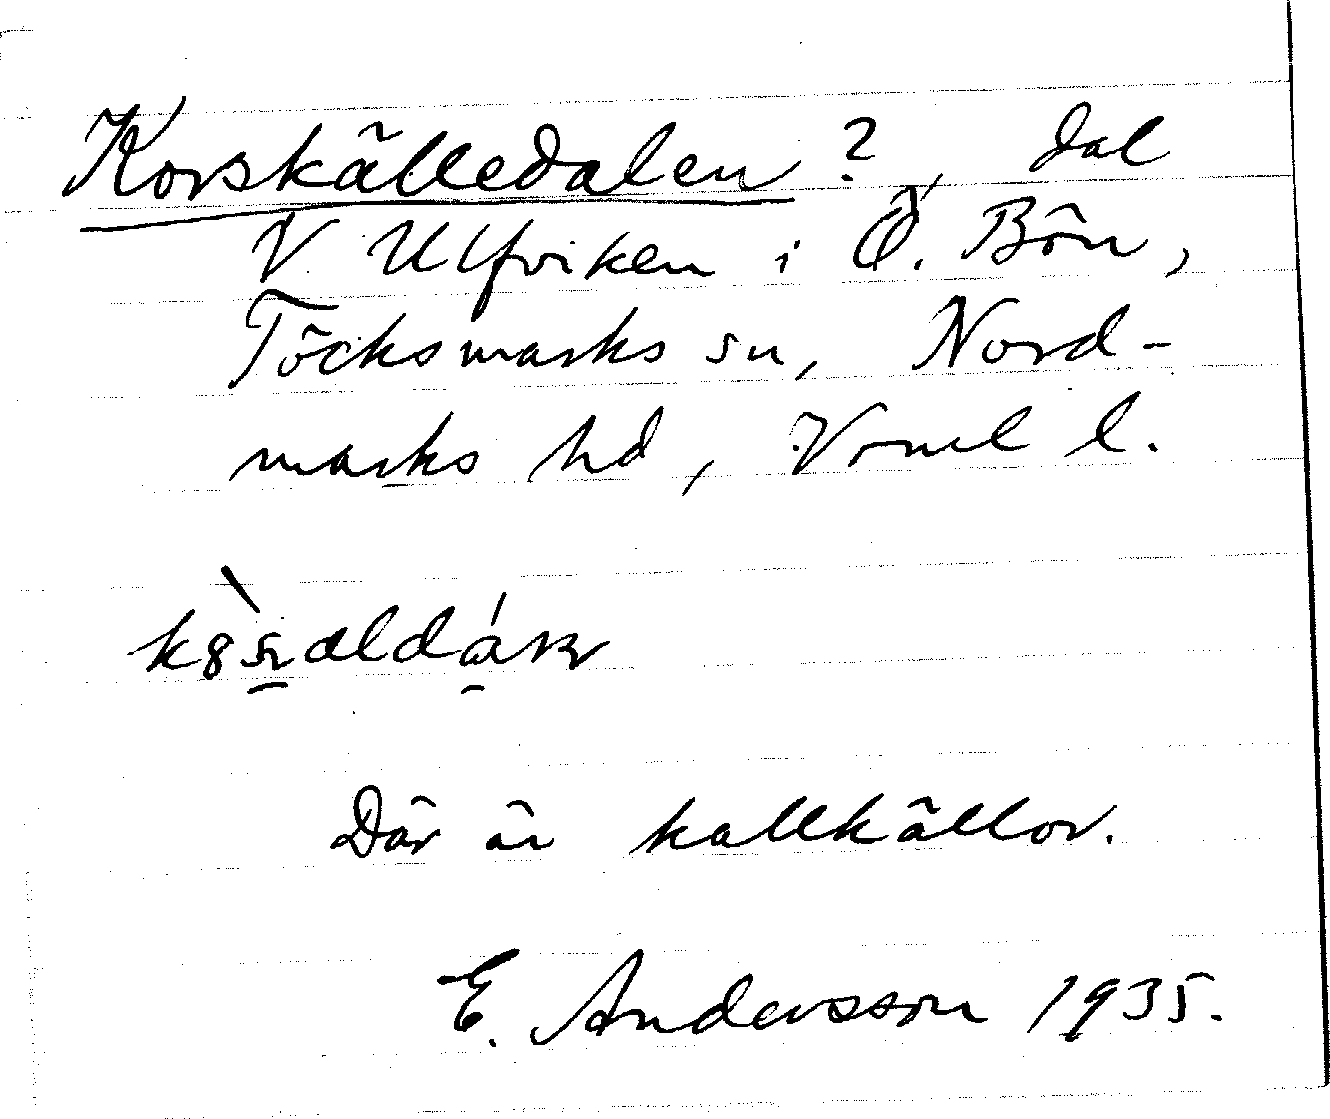 Korskälledalen?, dal
V. Ulfviken i Ö. Bön,
Töcksmarks sn, Nord-
marks hd, Vrml l.
Där är kallkällor.
E. Andersson 1935.